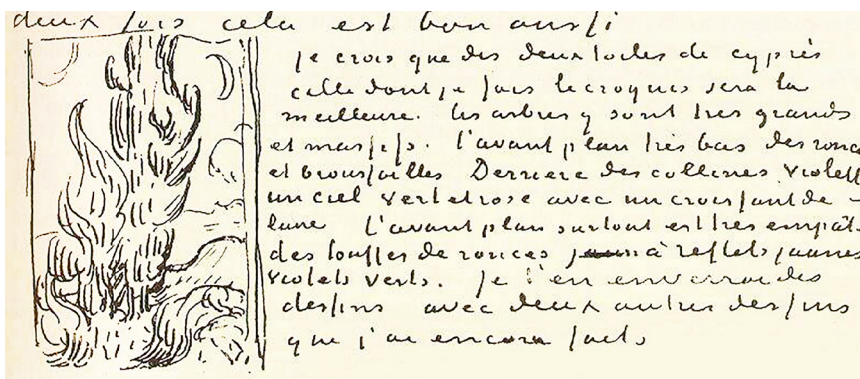 deux fois cela est bon aussi
je crois que des deux toiles de cyprès
celle dont je fais le croquis sera la
meilleure. les arbres y sont très grands
et massifs. l'avant plan très bas des ronces
et broussailles Derrière des collines violett
un ciel vert et rose avec un croissant de
lune l'avant plan surtout est très empât.
des touffes de ronces à reflets jaunes
violets verts. je t'en enverrai des
dessins avec deux autres dessins
que j'ai encore faits